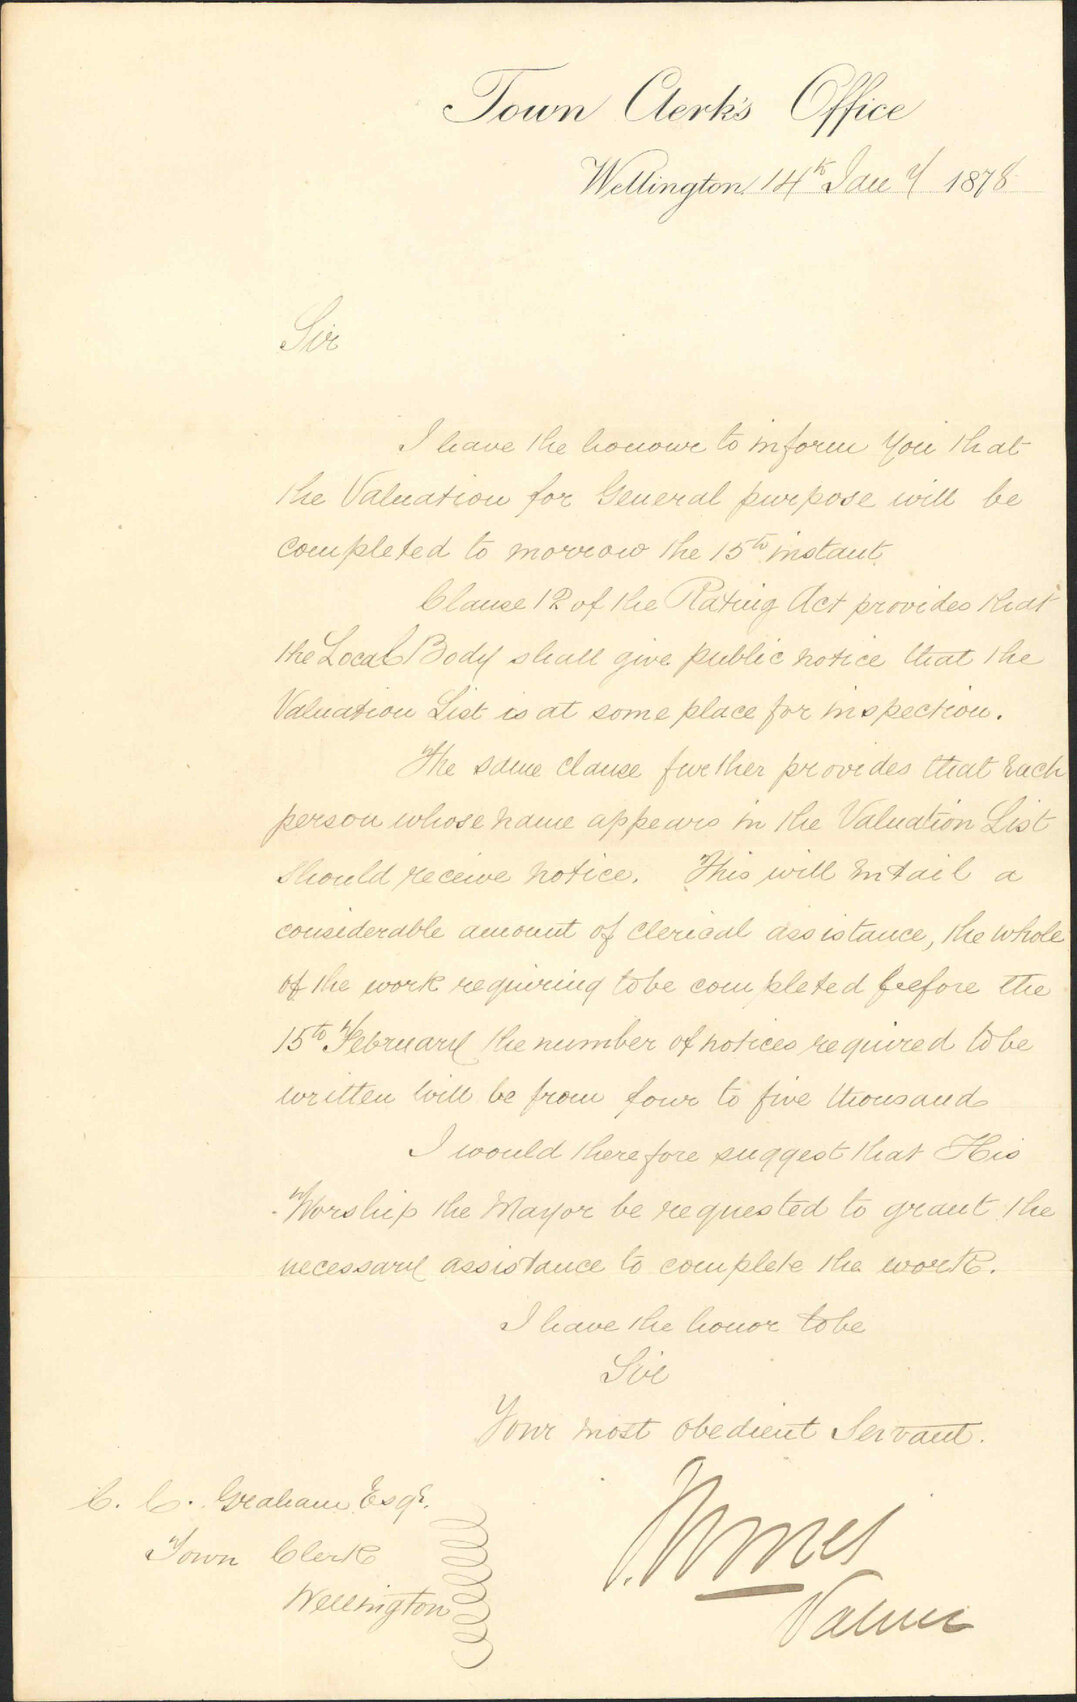 Town Clerk's Office
Wellington 14th Jany 1878
Sir
I have the honour to inform you that
the Valuation for General purpose will be
completed to morrow the 15th instant.
Clause 12 of the Rating Act provides that
the Local Body shall give public notice that the
Valuation List is at some place for inspection.
The same clause further provides that Each
person whose name appears in the Valuation List
should receive notice. This will entail a
considerable amount of clerical assistance, the whole
of the work requiring to be completed before the
15th February the number of notices required to be
written will be from four to five thousand
I would therefore suggest that His
Worship the Mayor be requested to grant the
necessary assistance to complete the work.
I have the honor to be
Sir
Your most obedient Servant.
C. C. Graham Esqr.
Town Clerk
Wellington
Valuer